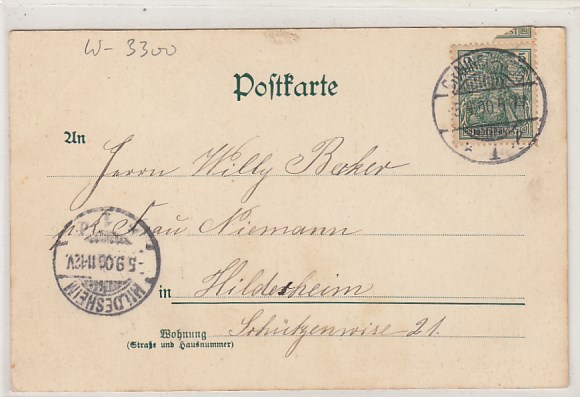 W- 3300
Postkarte
5
An
Herrn Willy Becker
p. Frau Niemann
in Hildesheim
Wohnung
(Straße und Hausnummer)
Schützenwise 21.
HILDESHEIM
-5.9.00 11-12V.
1